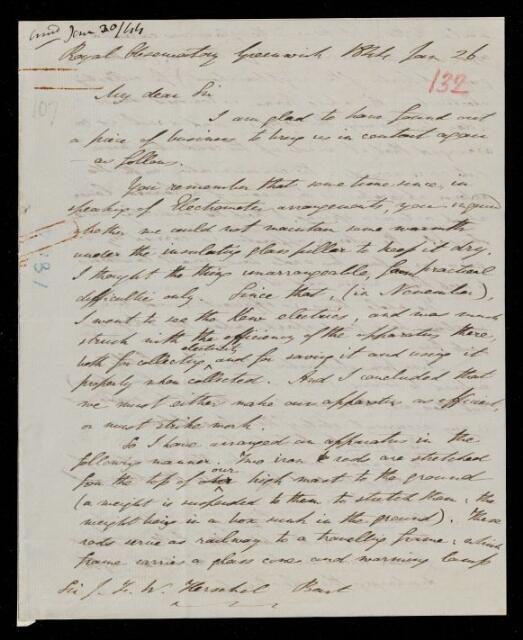 Jan 30/44
Royal Observatory Greenwich 1844 Jan 26
132
My dear Sir
I am glad to have found out
a piece of business to bring us in contact again
— as follows.
You remember that some time since, in
speaking of Electrometer arrangements, you inquired
whether we could not maintain some warmth
under the insulating glass pillar to keep it dry.
I thought the thing unarrangeable, from practical
difficulties only. Since that, (in November),
I went to see the Kew electrics, and was much
struck with the efficiency of the apparatus there,
electricity
both for collecting and for saving it and using it
properly when collected. And I concluded that
we must either make our apparatus as efficient,
or must strike work.
So I have arranged an apparatus in the
following manner. Two iron rods are stretched
our
from the top of high mast to the ground
(a weight is suspended to them to stretch them: the
weight being in a box sunk in the ground). These
rods serve as railway to a travelling frame: which
frame carries a glass cone and warming lamp
Sir J. F. W. Herschel Bart